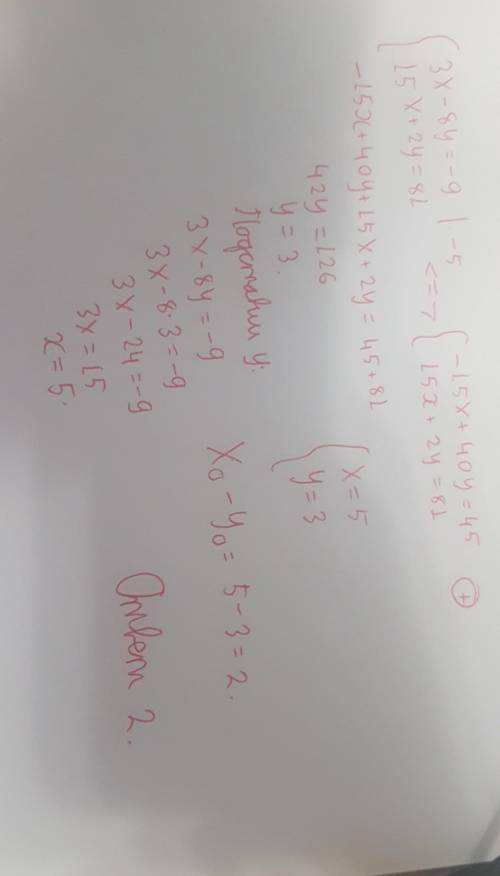 { 3x - 8y = -9 | -5 <=> { -15x + 40y = 45 (+)
{ 15x + 2y = 81 { 15x + 2y = 81
-15x + 40y + 15x + 2y = 45 + 81
42y = 126
y = 3.
{ x = 5
{ y = 3
Подставим y:
3x - 8y = -9
3x - 8·3 = -9
3x - 24 = -9
3x = 15
x = 5.
x₀ - y₀ = 5 - 3 = 2.
Ответ 2.